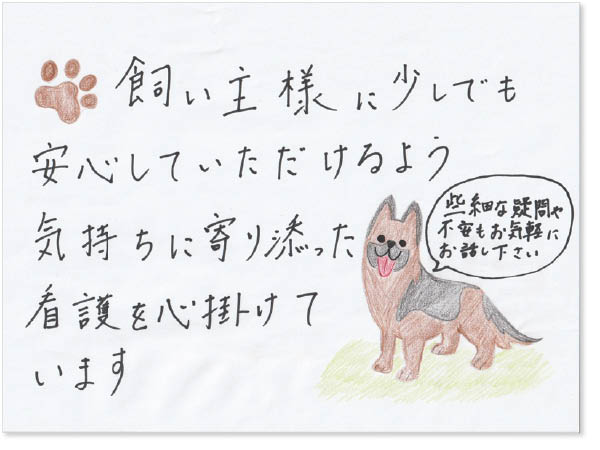 飼い主様に少しでも
安心していただけるよう
気持ちに寄り添った
看護を心掛けて
います
些細な疑問や
不安もお気軽に
お話し下さい